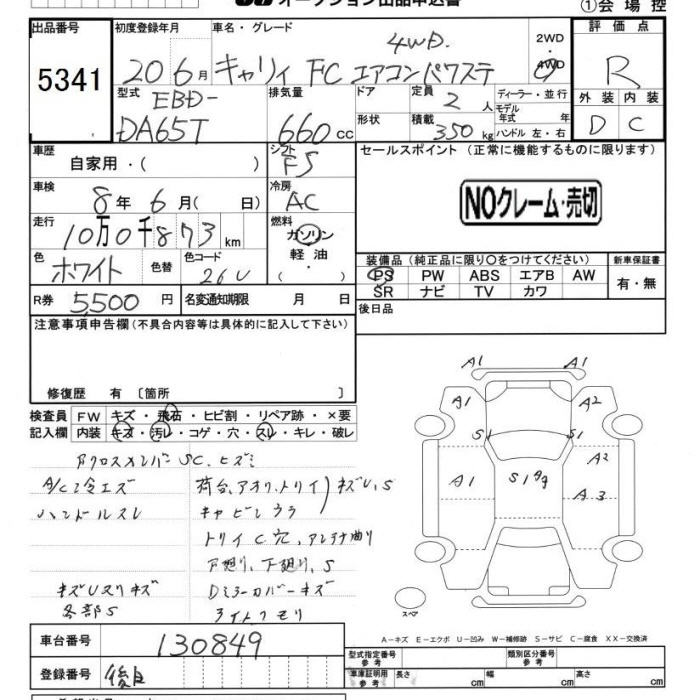 オークション出品申込書
①会場控
出品番号 初度登録年月 車名・グレード 2WD 評価点
5341 20 6月 キャリィ FC エアコンパワステ 4WD. 4WD R
型式 EBD- 排気量 ドア 定員 2 人 ディーラー・並行 外装 内装
DA65T 660 cc 形状 積載 350 kg モデル年式 年 ハンドル 左・右 D C
車歴 シフト セールスポイント (正常に機能するものに限ります)
自家用・( ) F5
車検 冷房
8年 6月( 日) AC
NOクレーム・売切
走行 燃料
10万0千873 km ガソリン
色 色替 色コード 軽油 装備品(純正品に限り○をつけてください) 新車保証書
ホワイト 26U ・ PS PW ABS エアB AW 有・無
R券 5,500 円 名変通知期限 月 日 SR ナビ TV カワ
注意事項申告欄(不具合内容等は具体的に記入して下さい) 後日品
修復歴 有 〔箇所 〕
検査員 FW キズ・飛石・ヒビ割・リペア跡・×要
記入欄 内装 キズ・汚レ・コゲ・穴・スレ・キレ・破レ
A1 A1
A1 A2
S1 S1
A2
A1 S1 A3
スペア
クロスメンバーSC、ヒズミ
A/C冷エズ 荷台、アオリ、トリイ)キズU、S
ハンドルスレ キャビンウラ
トリイC穴、アンテナ曲リ
下廻リ、S
キズUスリキズ Dミラーカバーキズ
各部S ライトクモリ
A－キズ E－エクボ U－凹み W－補修跡 S－サビ C－腐食 XX－交換済
車台番号 130849 型式指定番号 参考 類別区分番号 参考
登録番号 後日 車庫証明用 参考 長さ cm 幅 cm 高さ cm